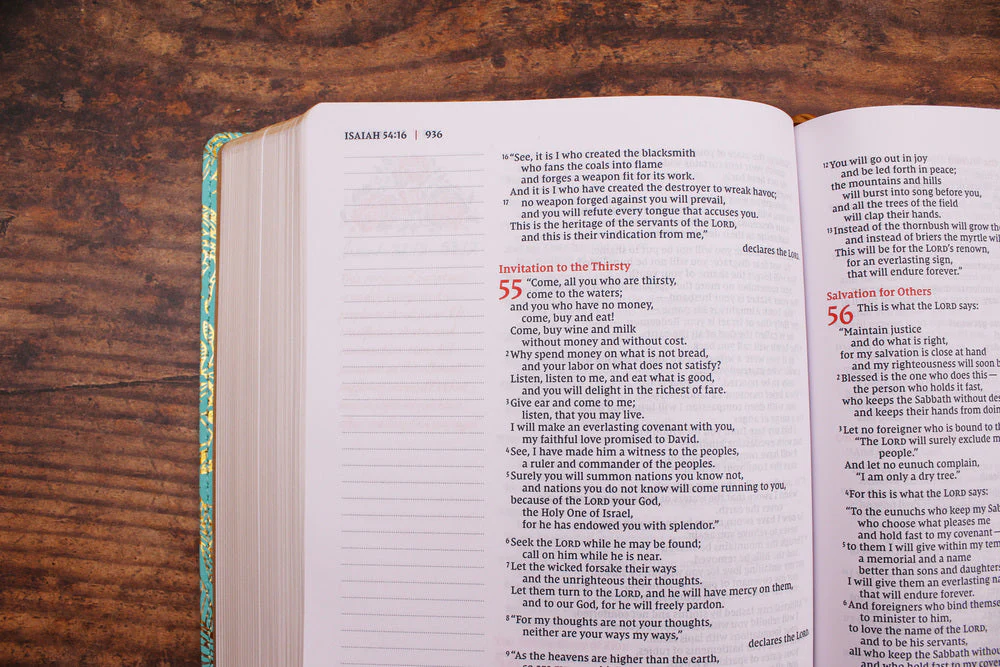 ISAIAH 54:16 | 936
16 "See, it is I who created the blacksmith
who fans the coals into flame
and forges a weapon fit for its work.
And it is I who have created the destroyer to wreak havoc;
17 no weapon forged against you will prevail,
and you will refute every tongue that accuses you.
This is the heritage of the servants of the LORD,
and this is their vindication from me,"
declares the LORD.
Invitation to the Thirsty
55 "Come, all you who are thirsty,
come to the waters;
and you who have no money,
come, buy and eat!
Come, buy wine and milk
without money and without cost.
2 Why spend money on what is not bread,
and your labor on what does not satisfy?
Listen, listen to me, and eat what is good,
and you will delight in the richest of fare.
3 Give ear and come to me;
listen, that you may live.
I will make an everlasting covenant with you,
my faithful love promised to David.
4 See, I have made him a witness to the peoples,
a ruler and commander of the peoples.
5 Surely you will summon nations you know not,
and nations you do not know will come running to you,
because of the LORD your God,
the Holy One of Israel,
for he has endowed you with splendor."
6 Seek the LORD while he may be found;
call on him while he is near.
7 Let the wicked forsake their ways
and the unrighteous their thoughts.
Let them turn to the LORD, and he will have mercy on them,
and to our God, for he will freely pardon.
8 "For my thoughts are not your thoughts,
neither are your ways my ways,"
declares the LORD.
9 "As the heavens are higher than the earth,
12 You will go out in joy
and be led forth in peace;
the mountains and hills
will burst into song before you,
and all the trees of the field
will clap their hands.
13 Instead of the thornbush will grow the
and instead of briers the myrtle
This will be for the LORD's renown,
for an everlasting sign,
that will endure forever."
Salvation for Others
56 This is what the LORD says:
"Maintain justice
and do what is right,
for my salvation is close at hand
and my righteousness will soon
2 Blessed is the one who does this—
the person who holds it fast,
who keeps the Sabbath without
and keeps their hands from
3 Let no foreigner who is bound to
"The LORD will surely exclude
people."
And let no eunuch complain,
"I am only a dry tree."
4 For this is what the LORD says:
"To the eunuchs who keep my
who choose what pleases me
and hold fast to my covenant—
5 to them I will give within my
a memorial and a name
better than sons and daughters
I will give them an everlasting
that will endure forever.
6 And foreigners who bind
to minister to him,
to love the name of the LORD,
and to be his servants,
all who keep the Sabbath
and who hold fast to my